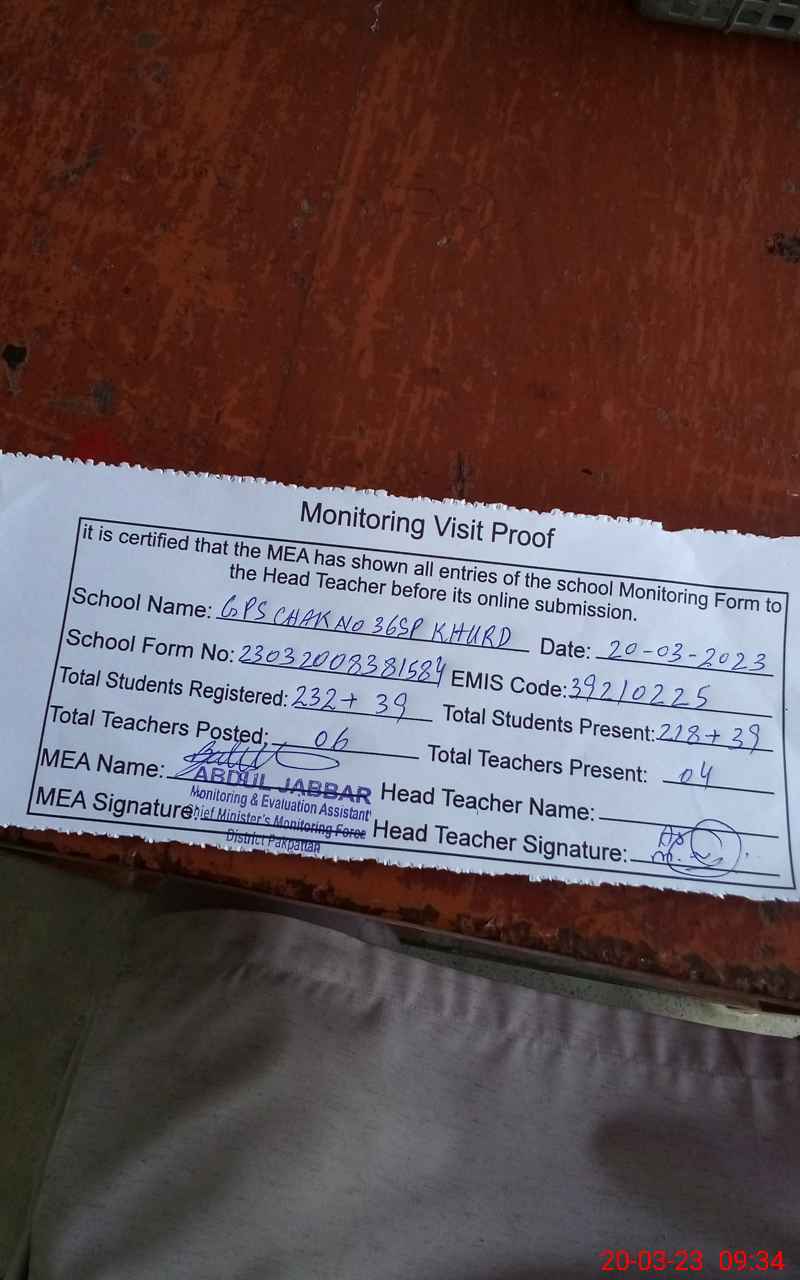 Monitoring Visit Proof
it is certified that the MEA has shown all entries of the school Monitoring Form to
the Head Teacher before its online submission.
School Name: GPS CHAK NO 36SP KHURD Date: 20-03-2023
School Form No: 23032008381584 EMIS Code: 39210225
Total Students Registered: 232+ 39 Total Students Present: 218+ 39
Total Teachers Posted: 06 Total Teachers Present: 04
MEA Name: ABDUL JABBAR Head Teacher Name:
Monitoring & Evaluation Assistant
MEA Signature Chief Minister's Monitoring Force Head Teacher Signature:
District Pakpattan
20-03-23 09:34